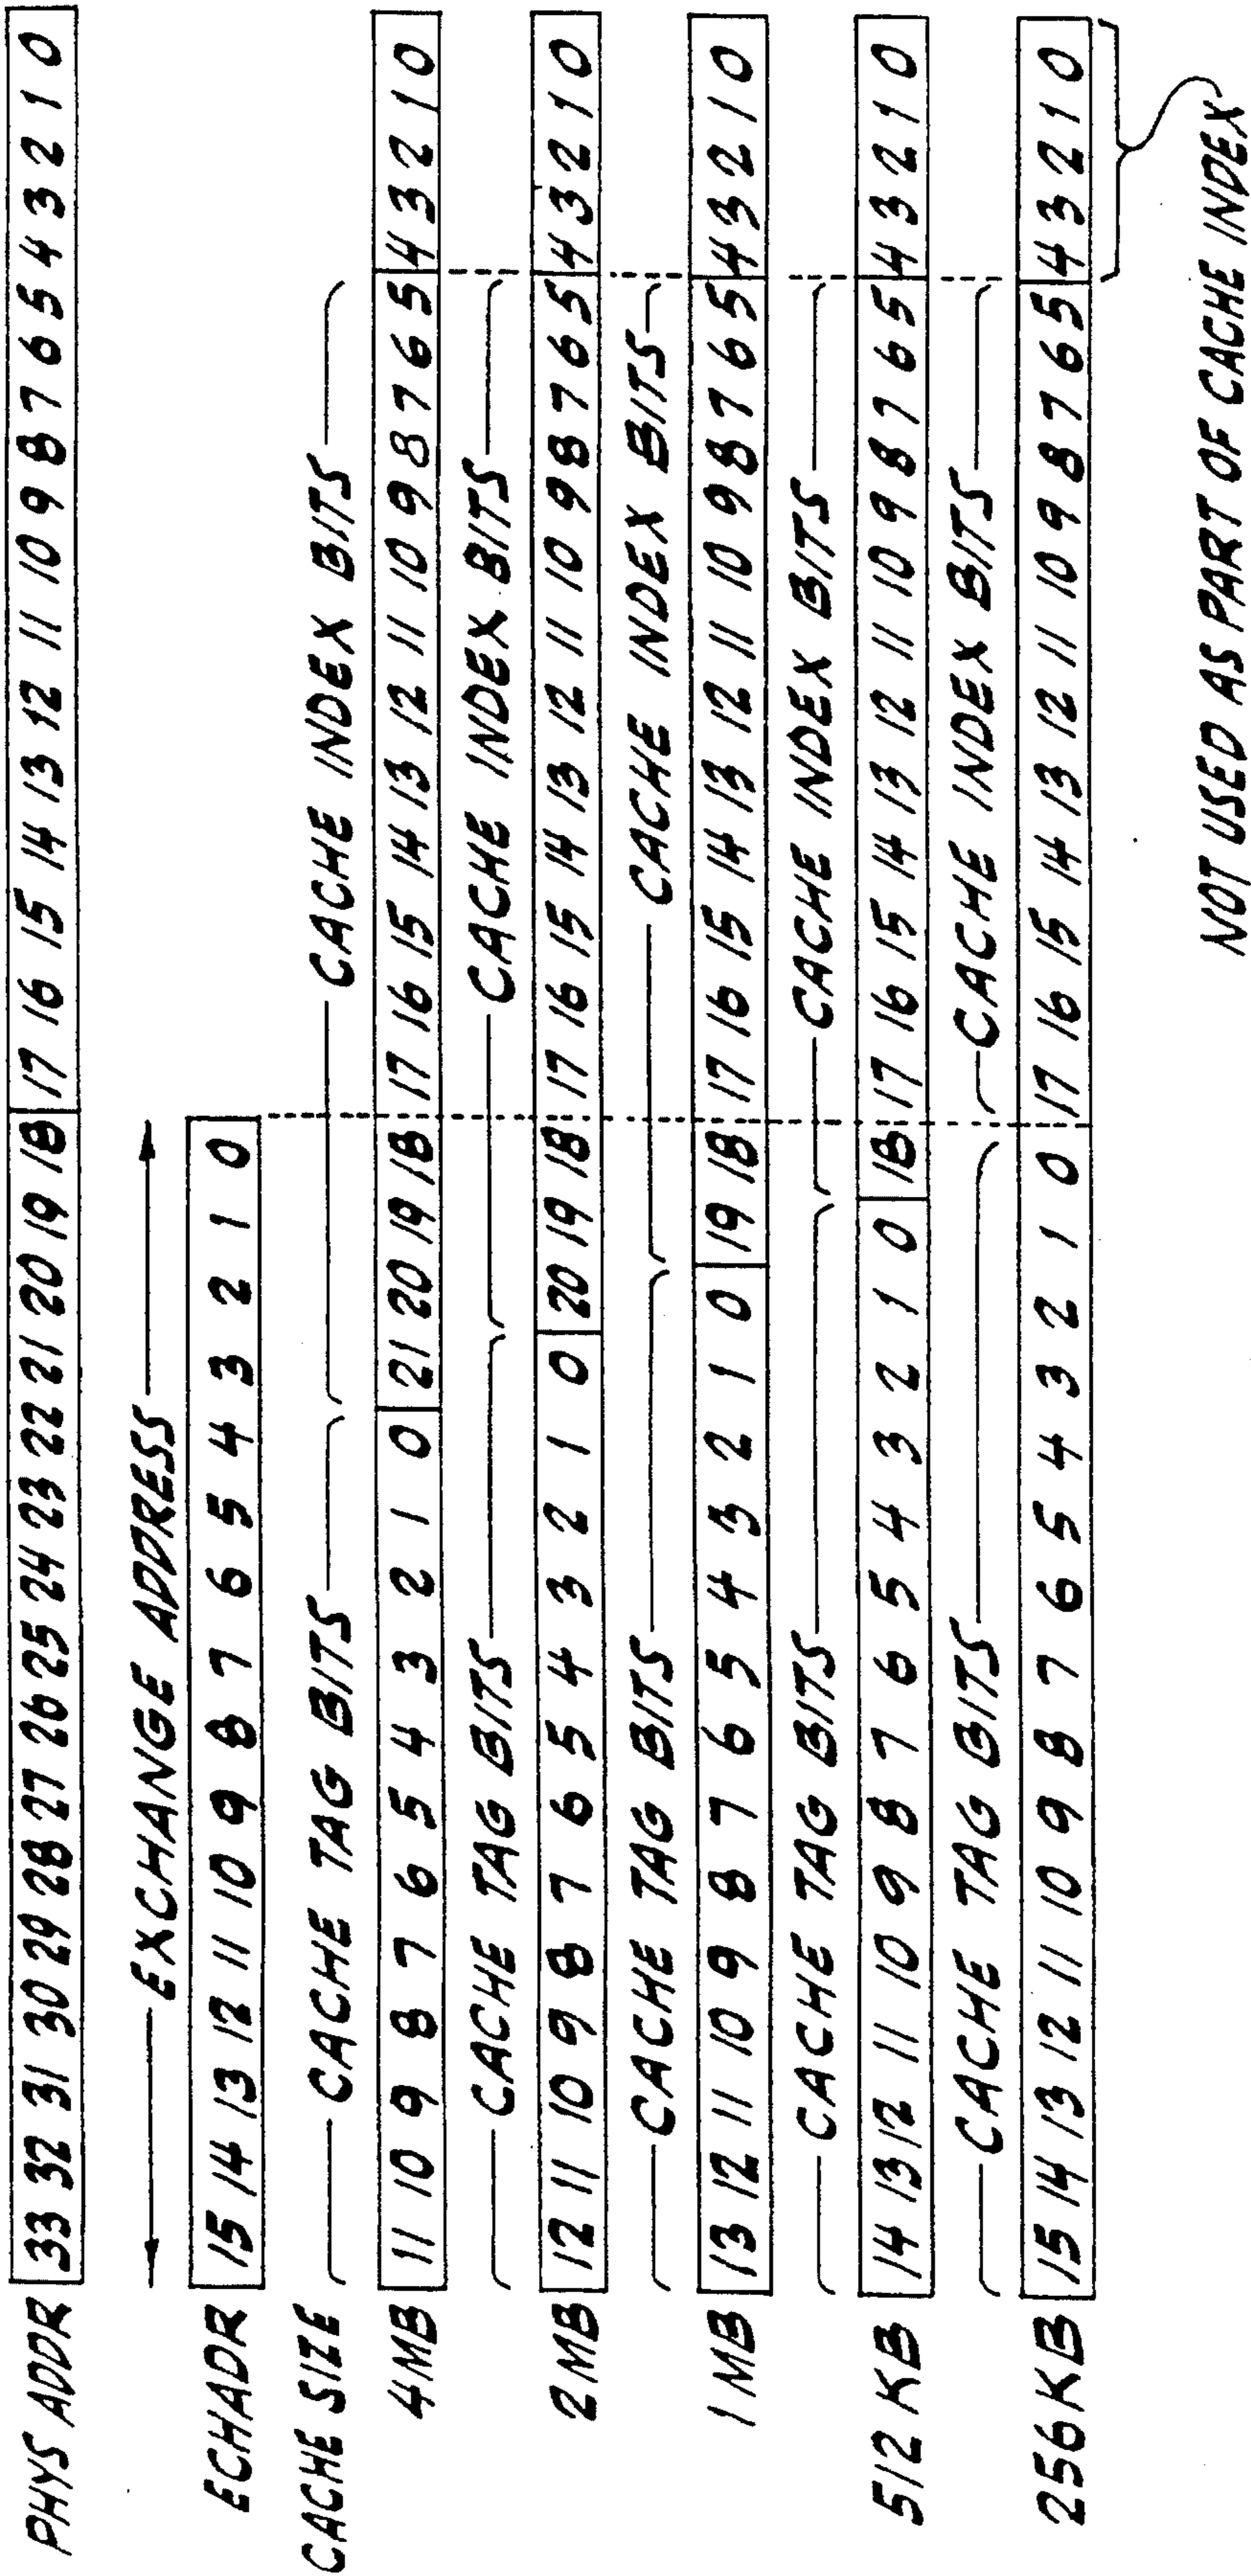 PHYS ADDR 33 32 31 30 29 28 27 26 25 24 23 22 21 20 19 18 17 16 15 14 13 12 11 10 9 8 7 6 5 4 3 2 1 0
EXCHANGE ADDRESS
ECHADR 15 14 13 12 11 10 9 8 7 6 5 4 3 2 1 0
CACHE SIZE CACHE TAG BITS CACHE INDEX BITS
4MB 11 10 9 8 7 6 5 4 3 2 1 0 21 20 19 18 17 16 15 14 13 12 11 10 9 8 7 6 5 4 3 2 1 0
CACHE TAG BITS CACHE INDEX BITS
2 MB 12 11 10 9 8 7 6 5 4 3 2 1 0 20 19 18 17 16 15 14 13 12 11 10 9 8 7 6 5 4 3 2 1 0
CACHE TAG BITS CACHE INDEX BITS
1 MB 13 12 11 10 9 8 7 6 5 4 3 2 1 0 19 18 17 16 15 14 13 12 11 10 9 8 7 6 5 4 3 2 1 0
CACHE TAG BITS CACHE INDEX BITS
512 KB 14 13 12 11 10 9 8 7 6 5 4 3 2 1 0 18 17 16 15 14 13 12 11 10 9 8 7 6 5 4 3 2 1 0
CACHE TAG BITS CACHE INDEX BITS
256KB 15 14 13 12 11 10 9 8 7 6 5 4 3 2 1 0 17 16 15 14 13 12 11 10 9 8 7 6 5 4 3 2 1 0
NOT USED AS PART OF CACHE INDEX